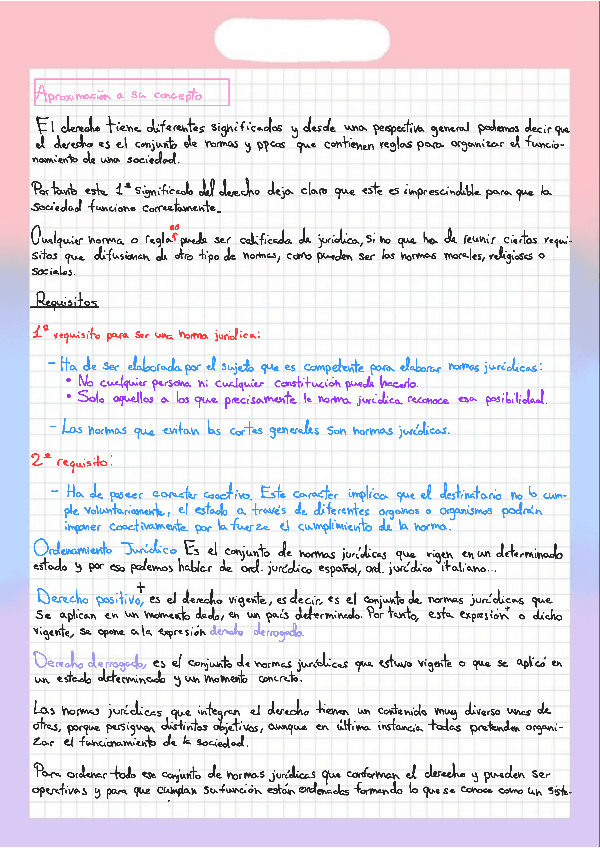 Aproximación a su concepto
El derecho tiene diferentes significados y desde una perspectiva general podemos decir que
el derecho es el conjunto de normas y ppcos que contienen reglas para organizar el funcio-
namiento de una sociedad.
Por tanto este 1º significado del derecho deja claro que este es imprescindible para que la
sociedad funcione correctamente.
no
Cualquier norma o regla puede ser calificada de jurídica, si no que ha de reunir ciertos requi-
sitos que difusionan de otro tipo de normas, como pueden ser las normas morales, religiosas o
sociales.
Requisitos
1º requisito para ser una norma jurídica:
- Ha de ser elaborada por el sujeto que es competente para elaborar normas jurídicas:
• No cualquier persona ni cualquier constitución puede hacerlo.
• Solo aquellos a los que precisamente la norma jurídica reconoce esa posibilidad.
- Las normas que evitan las cortes generales son normas jurídicas.
2º requisito:
- Ha de poseer caracter coactivo. Este caracter implica que el destinatario no lo cum-
ple voluntariamente, el estado a través de diferentes organos o organismos podrán
imponer coactivamente por la fuerza el cumplimiento de la norma.
Ordenamiento Jurídico Es el conjunto de normas jurídicas que rigen en un determinado
estado y por eso podemos hablar de ord. jurídico español, ord. jurídico italiano...
Derecho positivo, es el derecho vigente, es decir, es el conjunto de normas jurídicas que
se aplican en un momento dado, en un país determinado. Por tanto, esta expresión o dicho
vigente, se opone a la expresión derecho derrogado.
Derecho derrogado, es el conjunto de normas jurídicas que estuvo vigente o que se aplicó en
un estado determinado y un momento concreto.
Las normas jurídicas que integran el derecho tienen un contenido muy diverso unas de
otras, porque persiguen distintos objetivos, aunque en última instancia todas pretenden organi-
zar el funcionamiento de la sociedad.
Para ordenar todo ese conjunto de normas jurídicas que conforman el derecho y pueden ser
operativas y para que cumplan su función están ordenados formando lo que se conoce como un siste-